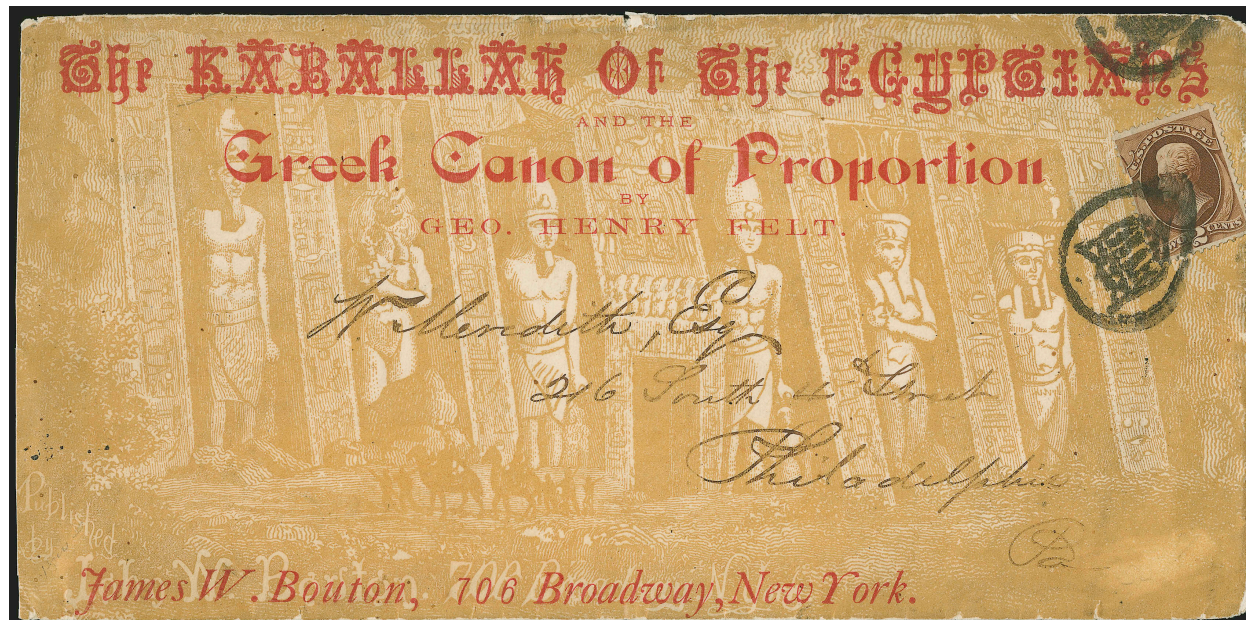 The KABALLAH Of The EGYPTIANS
AND THE
Greek Canon of Proportion
BY
GEO. HENRY FELT.
POSTAGE
TWO 2 CENTS
W Meredith, Esq
216 South 4th Street
Philadelphia
Pa
Published
by
James W. Bouton, 706 Broadway, New York.